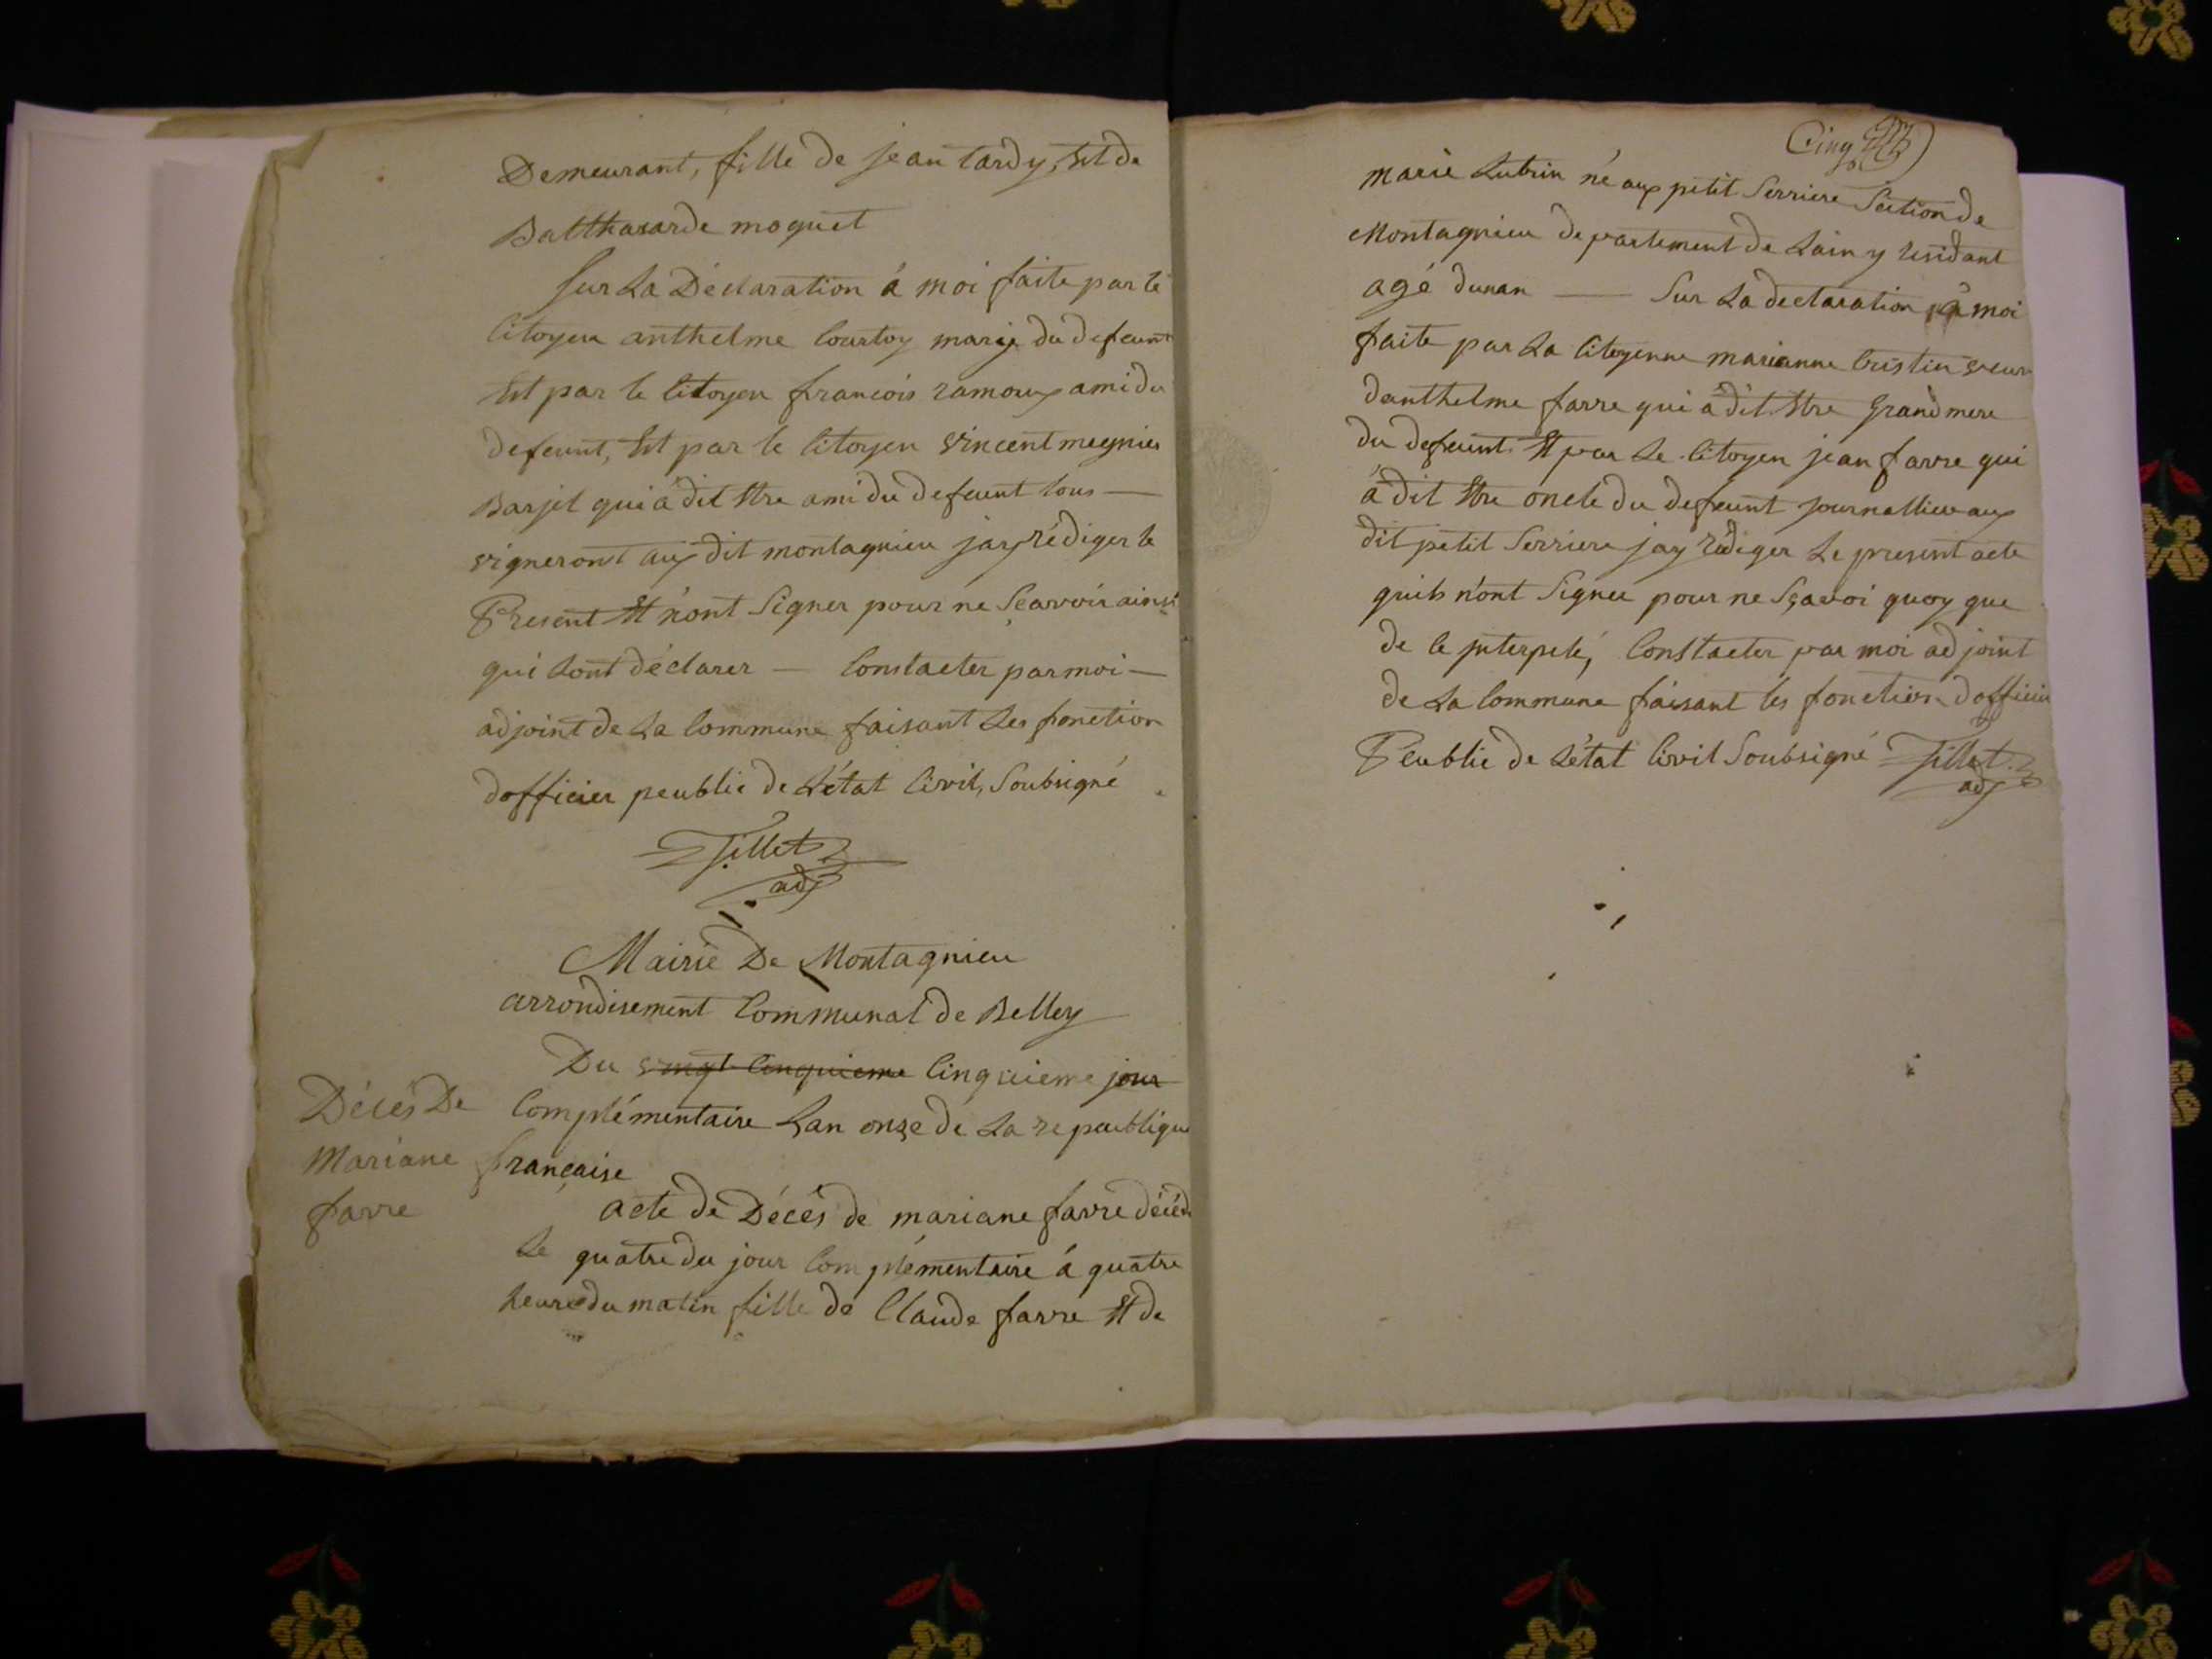 Demeurant, fille de jean tardy, Est de
Balthazarde moguet
Sur La Déclaration á moi faite par le
Citoyen anthelme Courtoy marie du defeunt
Est par le Citoyen francois ramoux ami du
defeunt, Est par le Citoyen Vincent megnier
Barjet qui á dit Etre ami du defeunt tous —
vigneront aux dit montagnieu jay rédiger le
Present Et n'ont Signer pour ne Sçavoir ainsi
qui Lont déclarer — Constacter par moi —
adjoint de La Commune faisant Les fonction
dofficier peublic de L'état Civil, Soubsigné
Tillet
adj
Mairie De Montagnieu
arrondisement Communal de Belley
Du vingt Cinquieme Cinquieme jour
Complémentaire Lan onze de La repeublique
française
Décés De
Mariane
favre
acte de Décés de mariane favre décéde
Le quatre du jour Complémentaire á quatre
heure du matin fille de Claude favre Et de
Cinq
marie Lutrin né aux petit Serriere Section de
Montagnieu departement de Lain y residant
agé dunan — Sur La declaration á moi
faite par La Citoyenne marianne Cristin veuve
danthelme favre qui á dit Etre Grand mere
du defeunt Et par Le Citoyen jean favre qui
á dit Etre oncle du defeunt journallier aux
dit petit Serriere jay rediger Le present acte
quils n'ont Signer pour ne Sçavoi quoy que
de ce jnterpelé, Constacter par moi adjoint
de La Commune faisant les fonction dofficier
Peublic de L'état Civil Soubsigné Tillet
adj